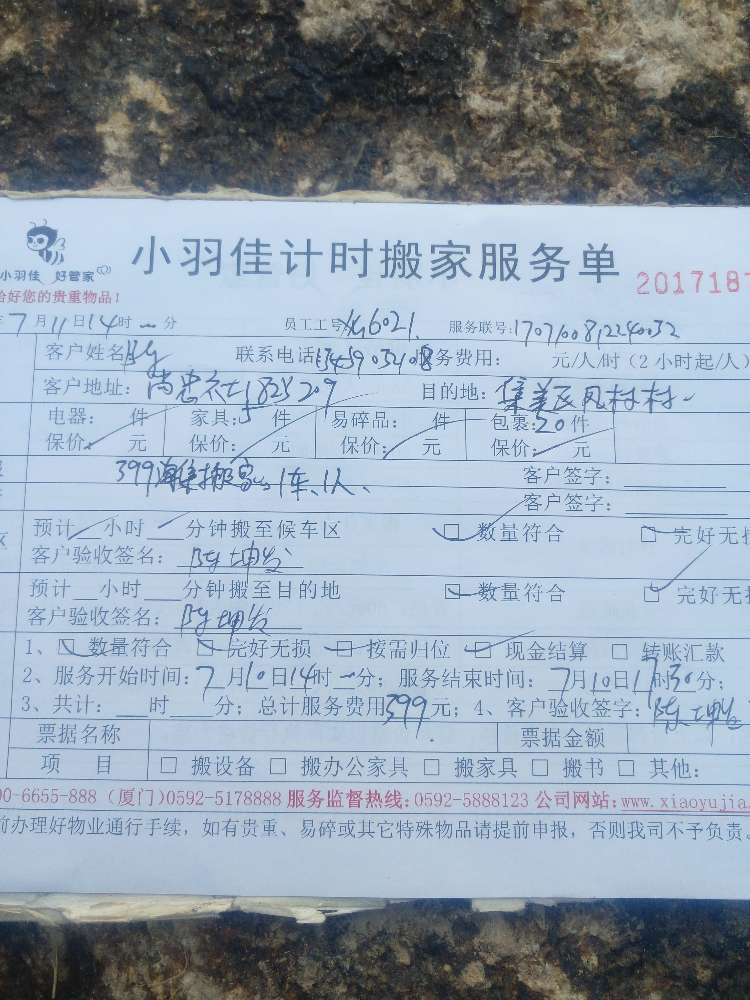 小羽佳计时搬家服务单 2017187
小羽佳 好管家
好您的贵重物品！
7月11日14时 分 员工工号 XG6021 服务联号:1707100812240032
客户姓名 陈 联系电话 务费用: 元/人/时(2小时起/人)
客户地址: 尚忠 目的地: 集美区凤林村
电器: 件 家具:5件 易碎品: 件 包裹:20件
保价: 元 保价: 元 保价: 元 保价: 元
399 搬家 1车、1人、 客户签字:
客户签字:
预计 小时 分钟搬至候车区 ☑数量符合 ☑完好无
客户验收签名: 陈坤发
预计 小时 分钟搬至目的地 ☑数量符合 ☑完好无
客户验收签名: 陈坤发
1、☑数量符合 ☑完好无损 ☑按需归位 ☑现金结算 □转账汇款
2、服务开始时间:7月10日14时 分; 服务结束时间: 7月10日17时30分;
3、共计: 时 分; 总计服务费用399元; 4、客户验收签字: 陈坤发
票据名称 票据金额
项 目 □搬设备 □搬办公家具 □搬家具 □搬书 □其他:
00-6655-888 (厦门)0592-5178888 服务监督热线:0592-5888123 公司网站:www.xiaoyujia.
前办理好物业通行手续，如有贵重、易碎或其它特殊物品请提前申报，否则我司不予负责。